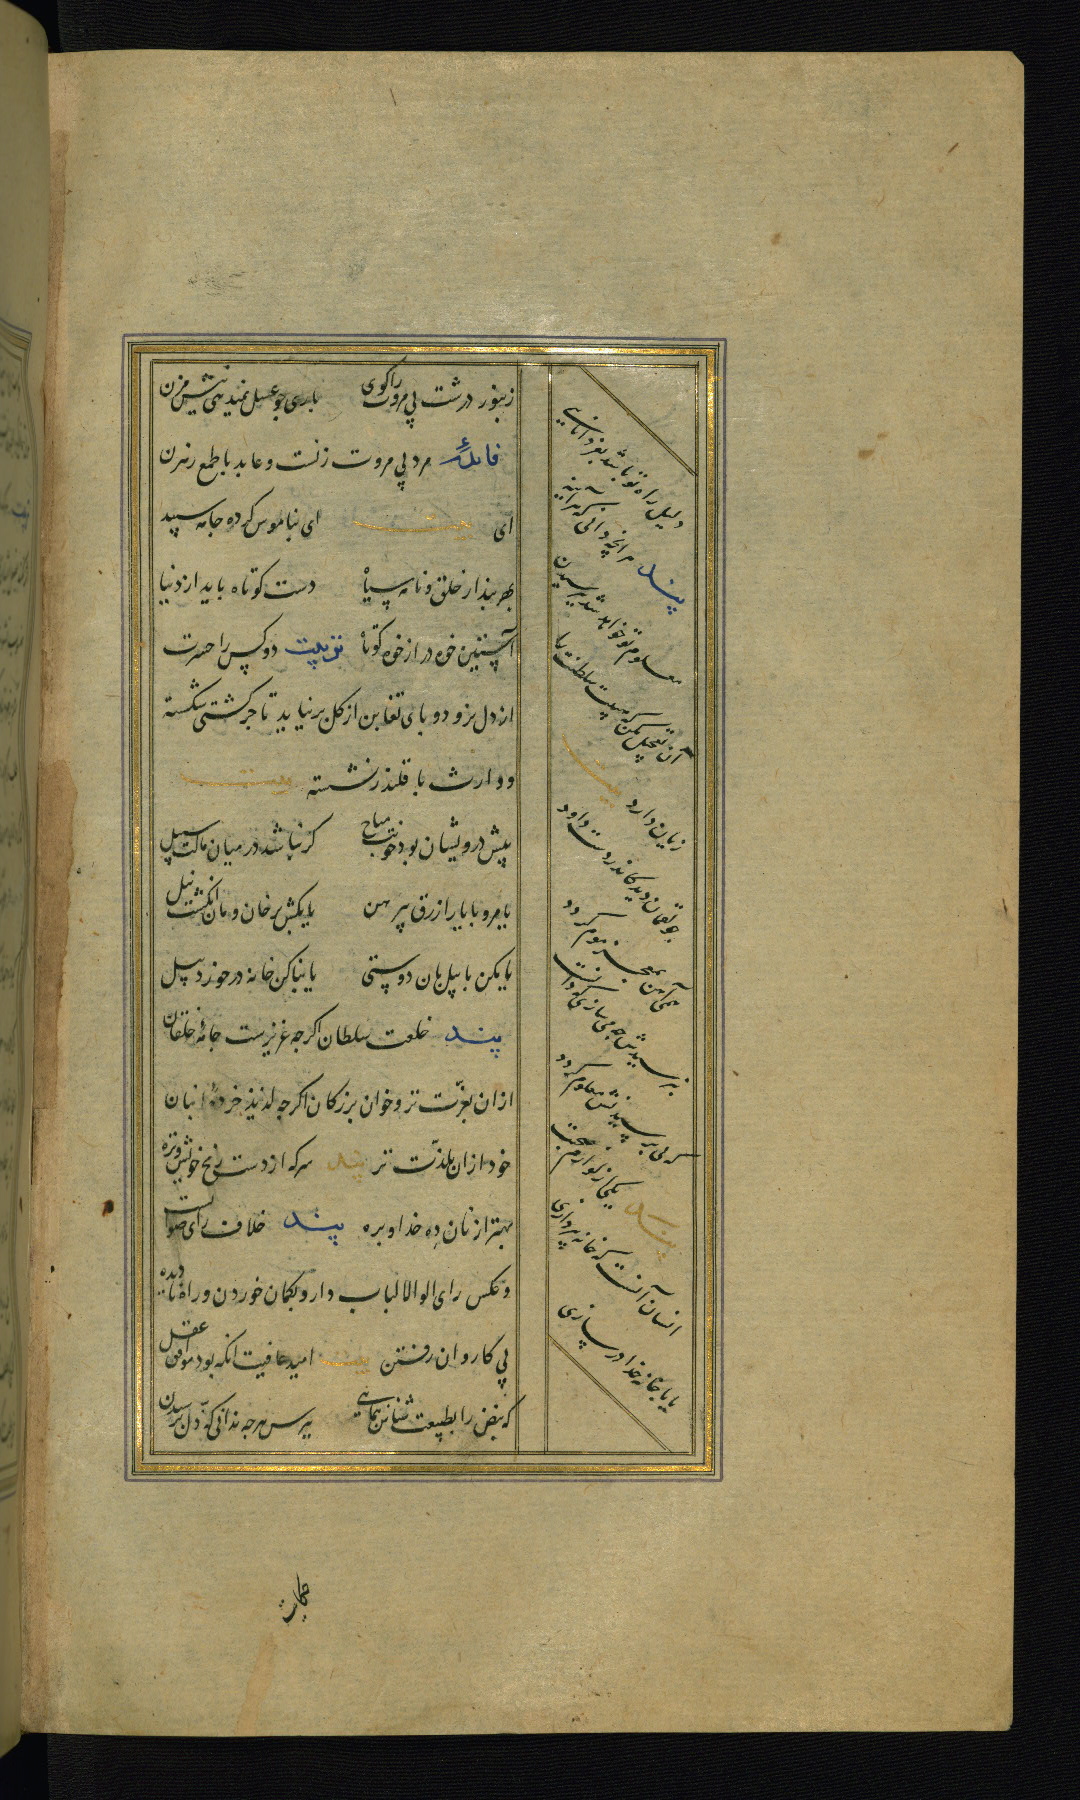 زنبور درشت بی مروت را کوی باری جو عسل نمیدهی نیش مزن
فایده مرد بی مروت زنست و عابد با طمع رهزن
ای بیت ای بناموس کرده جامه سپید
بهر پندار خلق و نامه سیاه دست کوتاه باید از دنیا
آستین خوه دراز خوه کوتاه تربیت دو کس را حسرت
از دل نرود و پای تغابن از کل بر نیاید تاجر کشتی شکسته
و وارث با قلندر نشسته بیت
پیش درویشان بود خونت مباح کر نباشد در میان مالت سبیل
یا مرو با یار ازرق پیرهن یا بکش بر خان و مان انکشت نیل
یا مکن با پیل بان دوستی یا بنا کن خانه در خورد پیل
پند خلعت سلطان اکرجه عزیزست جامه خلقان
از ان بعزت تر و خوان بزرکان اکرجه لذیذ خرده انبان
خود از ان بلذت تر پند سرکه از دست رنج خویش و تره
بهتر از نان ده خدا و بره پند خلاف رای صوابست
و عکس رای اولوا الالباب دارو بکمان خوردن و راه نادیده
بی کاروان رفتن بیت امید عافیت انکه بود موافق عقل
که نبض را بطبیعت شناس بنمایی بپرس هرجه ندانی که ذل پرسیدن
دلیل راه تو باشد بعز دانایی
پند هر انچه دانی که هراینه
معلوم تو خواهد شد بپرسیدن
آن تعجیل مکن که هیبت سلطنت را
زیان دارد بیت
جو لقمان دید کاندر دست داود
همی آهن بمعجز موم کردد
نپرسیدش جه می سازی که دانست
که بی پرسیدنش معلوم کردد
پند یکی از لوازم صحبت
انسان آنست که خانه بپردازی
یا با خانه خدا در سازی
حکایت